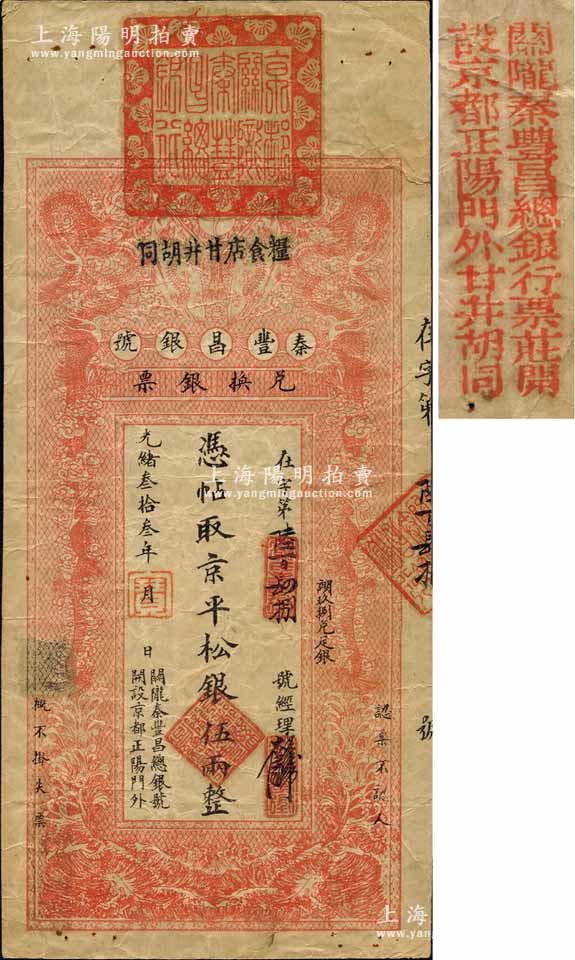 上海陽明拍賣
www.yangmingauction.com
糧食店甘井胡同
秦豐昌銀號
兌換銀票
在字第陸百肆拾捌號經理
憑帖取京平松銀伍兩整
光緒叁拾叁年 月 日
關隴秦豐昌總銀號
開設京都正陽門外
認票不認人
概不掛失票
存字第
號
關隴秦豐昌總銀行票莊開
設京都正陽門外甘井胡同
上海陽明拍賣
www.yangmingauction.com